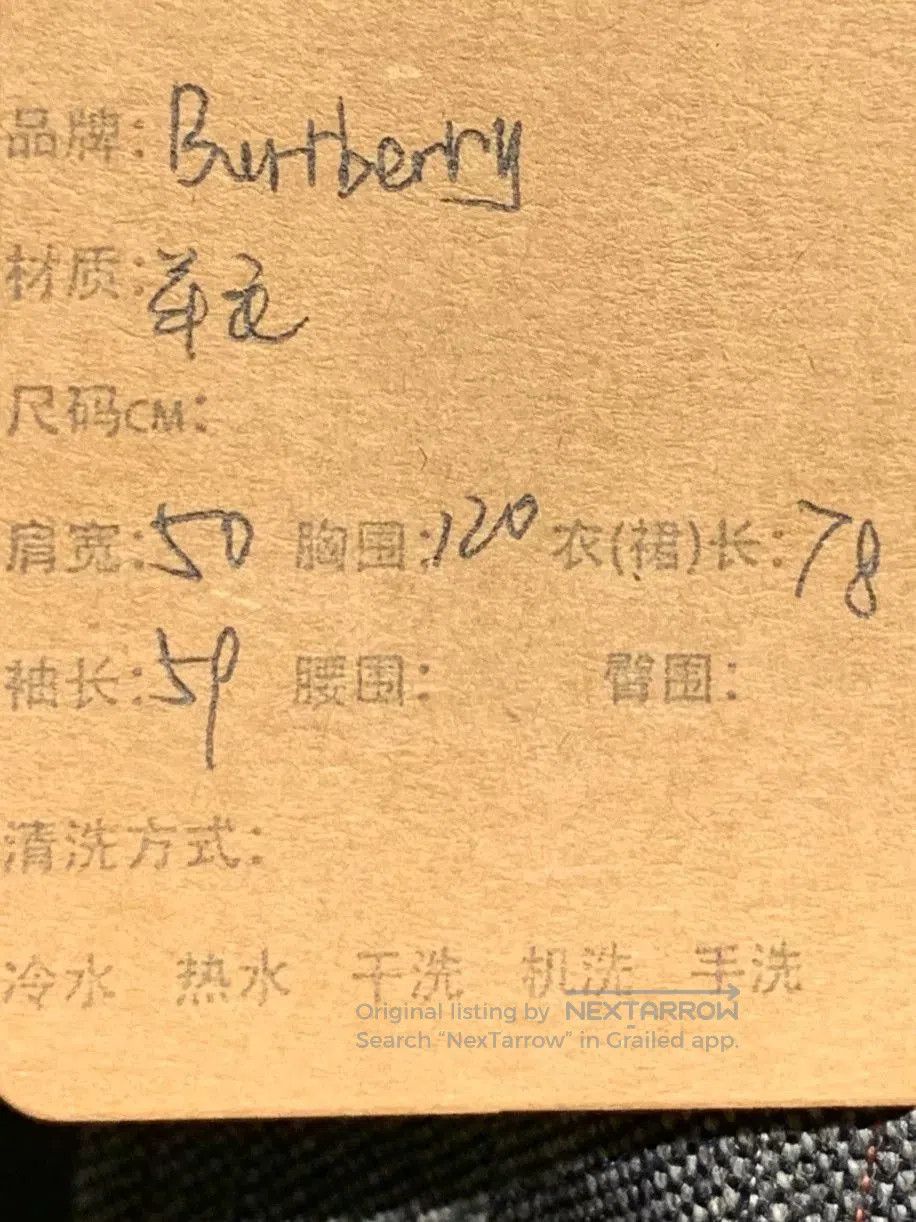 品牌: Burtberry
材质:
尺码CM:
肩宽: 50 胸围: 120 衣(裙)长: 78
袖长: 59 腰围: 臀围:
清洗方式:
冷水 热水 干洗 机洗 手洗
Original listing by NEXTARROW
Search “NexTarrow” in Grailed app.